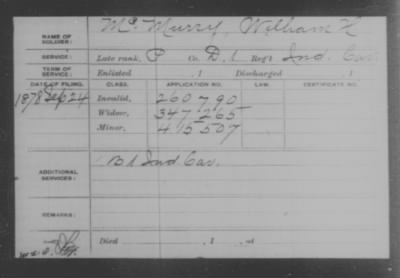 NAME OF SOLDIER: McMurry, William H
SERVICE: Late rank, P Co. D, 1 Reg't Ind. Cav.
TERM OF SERVICE: Enlisted , 1 Discharged , 1
DATE OF FILING. CLASS. APPLICATION NO. LAW. CERTIFICATE NO.
1878 Sep 24 Invalid, 260790
Widow, 347265
Minor, 415507
ADDITIONAL SERVICES: B 1 Ind Cav.
REMARKS:
Died , 1 , at